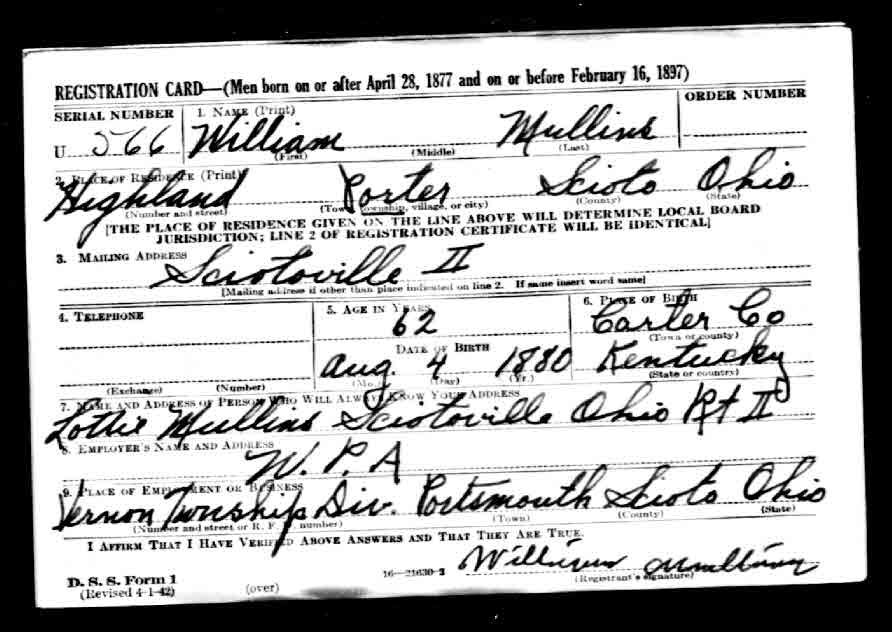 REGISTRATION CARD—(Men born on or after April 28, 1877 and on or before February 16, 1897)
SERIAL NUMBER 1. NAME (Print) ORDER NUMBER
U 566 William Mullins
(First) (Middle) (Last)
2. PLACE OF RESIDENCE (Print)
Highland Porter Scioto Ohio
(Number and street) (Town, township, village, or city) (County) (State)
[THE PLACE OF RESIDENCE GIVEN ON THE LINE ABOVE WILL DETERMINE LOCAL BOARD
JURISDICTION; LINE 2 OF REGISTRATION CERTIFICATE WILL BE IDENTICAL]
3. MAILING ADDRESS
Sciotoville II
[Mailing address if other than place indicated on line 2. If same insert word same]
4. TELEPHONE 5. AGE IN YEARS 6. PLACE OF BIRTH
62 Carter Co
DATE OF BIRTH (Town or county)
Aug. 4 1880 Kentucky
(Exchange) (Number) (Mo.) (Day) (Yr.) (State or country)
7. NAME AND ADDRESS OF PERSON WHO WILL ALWAYS KNOW YOUR ADDRESS
Lottie Mullins Sciotoville Ohio Rt II
8. EMPLOYER'S NAME AND ADDRESS
W. P. A
9. PLACE OF EMPLOYMENT OR BUSINESS
Vernon Township Div. Portsmouth Scioto Ohio
(Number and street or R. F. D. number) (Town) (County) (State)
I AFFIRM THAT I HAVE VERIFIED ABOVE ANSWERS AND THAT THEY ARE TRUE.
William Mullins
D. S. S. Form 1 16—21630-2 (Registrant's signature)
(Revised 4-1-42) (over)